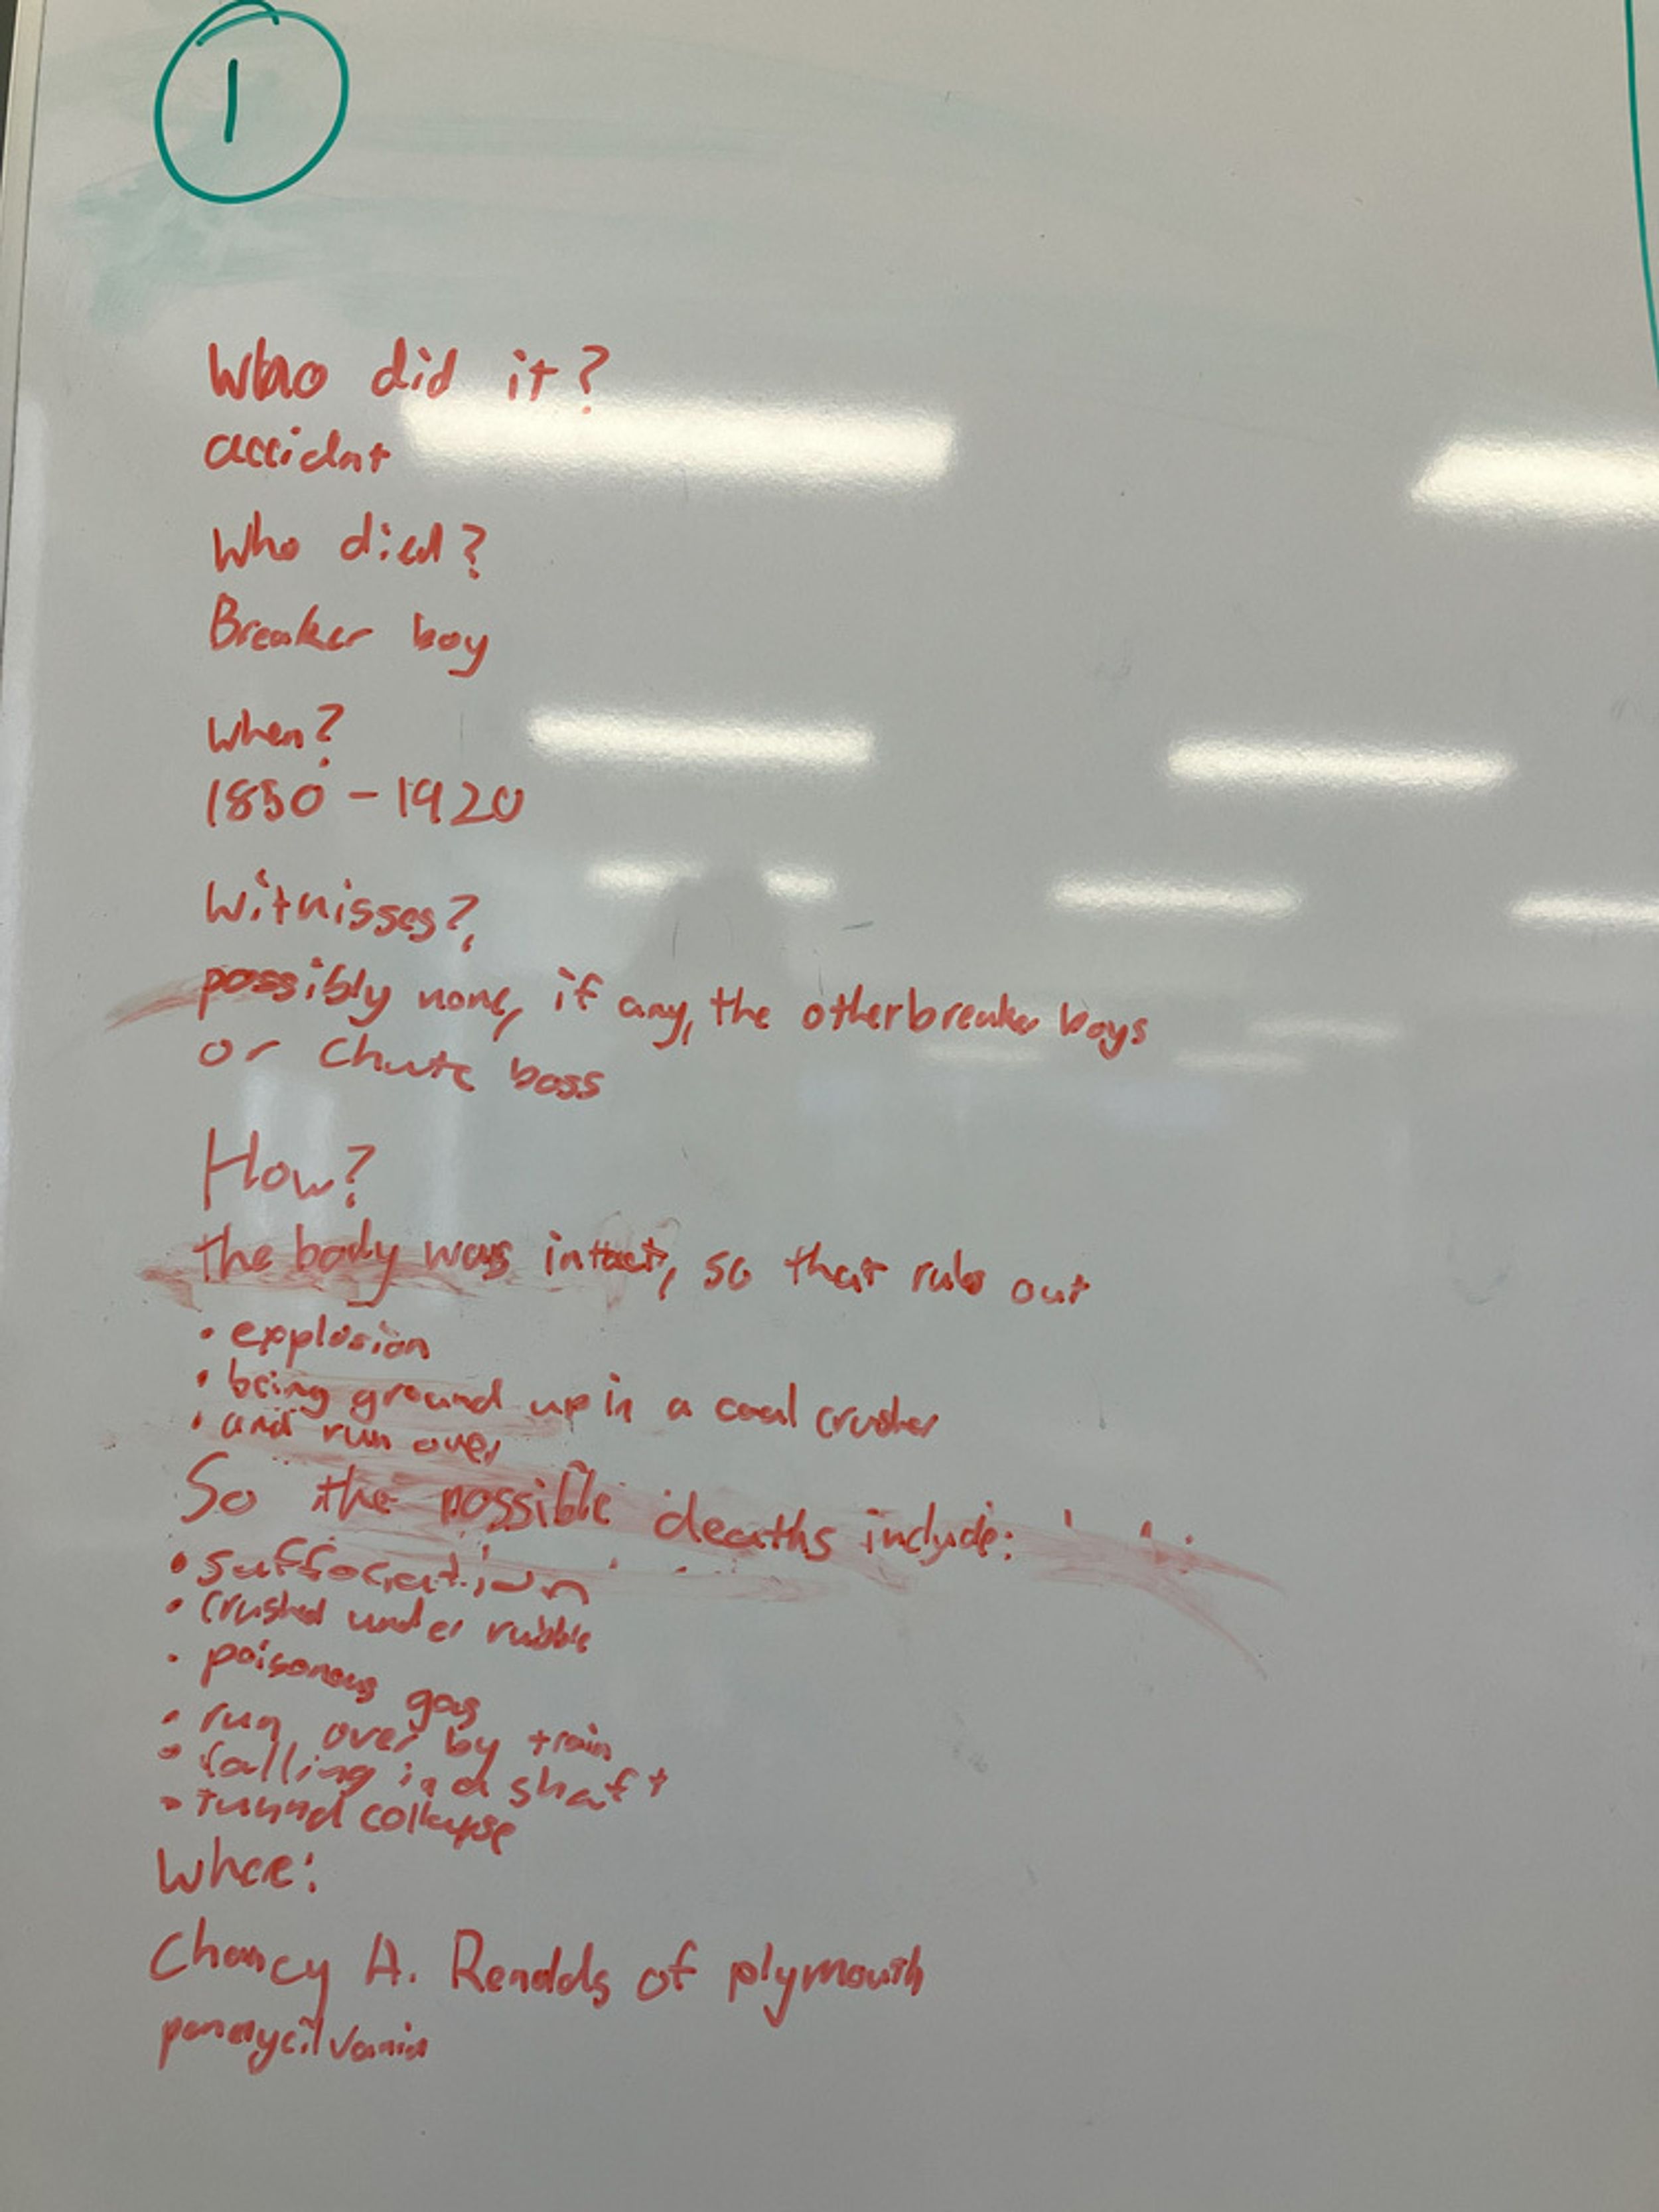 1
Who did it?
accidnt
Who died?
Breaker boy
When?
1850 - 1920
Witnisses?,
possibly none, if any, the other breaker boys
or Chute boss
How?
the body was intact, so that ruls out
• explosion
• being ground up in a coal crusher
• and run over
So the possible deaths include:
• suffocation
• crushed under rubble
• poisonous gas
• run over by train
• falling in a shaft
• tunnel collapse
Where:
Chancy A. Renalds of plymouth
pennycilvania